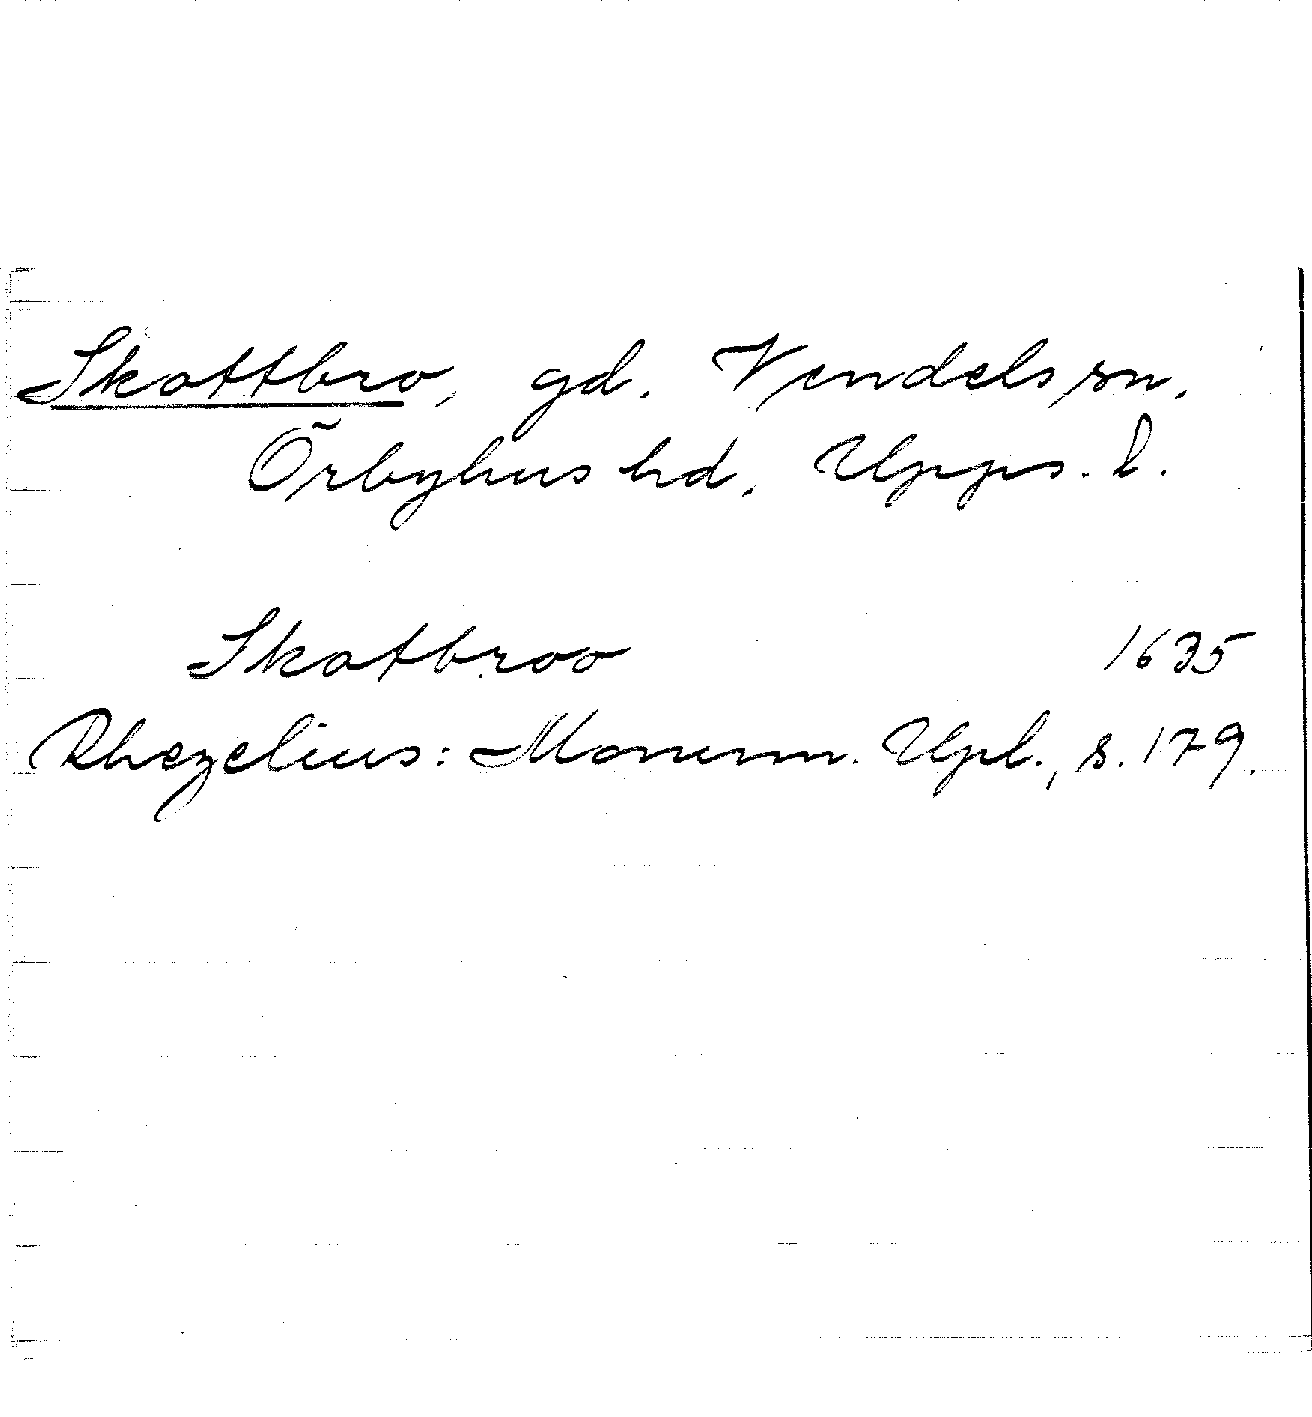 Skattbro, gd. Vendels sn.
Örbyhus hd, Upps. l.
Skatbroo 1635
Rhezelius: Monum. Upl., s. 179.